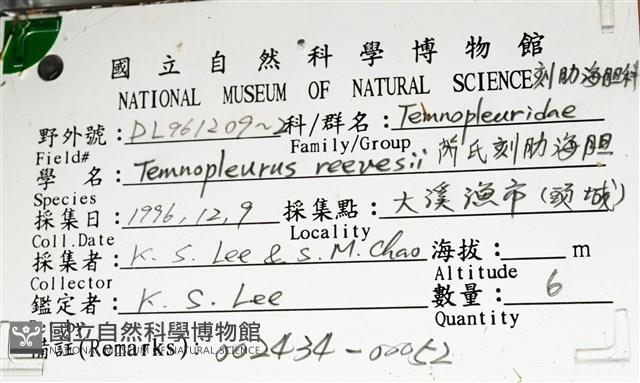 國立自然科學博物館
NATIONAL MUSEUM OF NATURAL SCIENCE 刻肋海胆科
野外號：DL961209~2 科/群名：Temnopleuridae
Field# Family/Group
學 名：Temnopleurus reevesii 芮氏刻肋海胆
Species
採集日：1996,12,9 採集點：大溪漁市(頭城)
Coll.Date Locality
採集者：K. S. Lee & S. M. Chao 海拔：m
Collector Altitude
鑑定者：K. S. Lee 數量：6
Quantity
國立自然科學博物館
NATIONAL MUSEUM OF NATURAL SCIENCE
備註(Remarks)：002434-00052